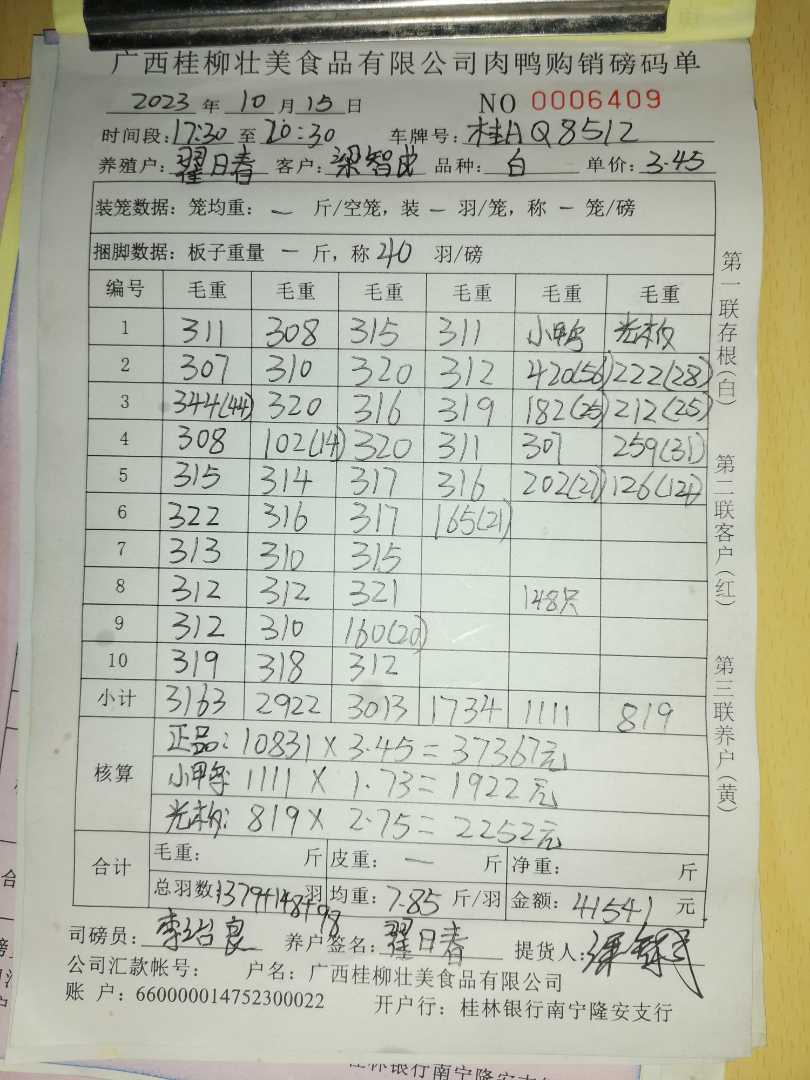 广西桂柳壮美食品有限公司肉鸭购销磅码单
2023 年 10 月 15 日 NO 0006409
时间段: 17:30 至 20:30 车牌号: 桂AQ8512
养殖户: 翟日春 客户: 梁智成 品种: 白 单价: 3.45
装笼数据: 笼均重: — 斤/空笼, 装 — 羽/笼, 称 — 笼/磅
捆脚数据: 板子重量 — 斤, 称 40 羽/磅
编号 毛重 毛重 毛重 毛重 毛重 毛重
1 311 308 315 311 小鸭 光板
2 307 310 320 312 420(56) 222(28)
3 344(44) 320 316 319 182(25) 212(25)
4 308 102(14) 320 311 307 259(31)
5 315 314 317 316 202(27) 126(14)
6 322 316 317 165(21)
7 313 310 315
8 312 312 321 148只
9 312 310 160(20)
10 319 318 312
小计 3163 2922 3013 1734 1111 819
核算 正品: 10831 × 3.45 = 37367元
小鸭: 1111 × 1.73 = 1922元
光板: 819 × 2.75 = 2252元
合计 毛重: 斤 皮重: — 斤 净重: 斤
总羽数: 1379+148+98 羽 均重: 7.85 斤/羽 金额: 41541 元
司磅员: 李治良 养户签名: 翟日春 提货人:
公司汇款帐号: 户名: 广西桂柳壮美食品有限公司
账 户: 660000014752300022 开户行: 桂林银行南宁隆安支行
第一联存根(白)
第二联客户(红)
第三联养户(黄)
桂林银行南宁隆安支